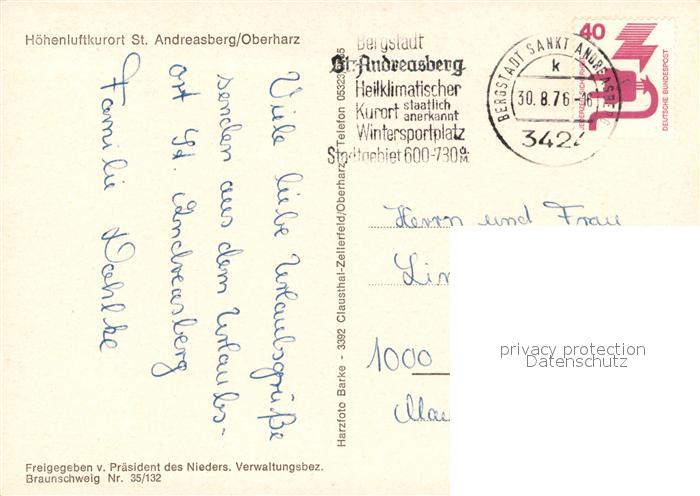 Höhenluftkurort St. Andreasberg/Oberharz
Viele liebe Urlaubsgrüße
senden aus dem Urlaubs-
ort St. Andreasberg
Familie Dahlke
Freigegeben v. Präsident des Nieders. Verwaltungsbez.
Braunschweig Nr. 35/132
Harzfoto Barke - 3392 Clausthal-Zellerfeld/Oberharz, Telefon 05323
Bergstadt
St. Andreasberg
Heilklimatischer
Kurort staatlich
anerkannt
Wintersportplatz
Stadtgebiet 600-730 ü.M.
BERGSTADT SANKT ANDREASBERG
k
30.8.76-16
3424
40
JEDERZEIT SICHERHEIT
DEUTSCHE BUNDESPOST
Herrn und Frau
Lin
1000
Mau
privacy protection
Datenschutz